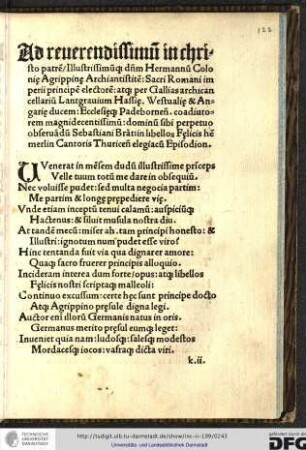 122
Ad reuerendissimũ in chri-
sto patrẽ/Illustrissimũq; dñm Hermannũ Colo
nię Agrippinę Archiantistitẽ: Sacri Romani im
perii principẽ electorẽ: atq; per Gallias archican
cellariũ Lantgrauium Hassię, Westualię & An-
garię ducem: Ecclesięq; Padebornen̄. coadiuto
rem magnidecentissimũ: dominũ sibi perpetuo
obseruãdũ Sebastiani Brãtin libellos Fęlicis hē
merlin Cantoris Thuricen̄ elegiacũ Episodion.
VEnerat in mēsem dudũ illustrissime prīceps
Velle tuum totũ me dare in obsequiũ.
Nec voluisse pudet: sed multa negocia partim:
Me partim & longę prępediere vię.
Vnde etiam inceptũ tenui calamũ: auspiciũq;
Hactenus: & siluit musula nostra diu.
At tandē mecũ: miser ah. tam principi honesto: &
Illustri: ignotum num pudet esse viro?
Hinc tentanda fuit via qua dignarer amore:
Quaq; sacro fruerer principis alloquio.
Incideram interea dum forte/opus: atq; libellos
Fęlicis nostri scriptaq; malleoli:
Continuo excussum: certe hęc sunt principe docto
Atq; Agrippino pręsule digna legi.
Auctor eni illorũ Germanis natus in oris.
Germanus merito pręsul eumq; leget:
Inueniet quia nam: ludosq;: salesq; modestos
Mordacesq; iocos: vafraq; dicta viri.
k.ii.
TECHNISCHE
UNIVERSITÄT
DARMSTADT
http://tudigit.ulb.tu-darmstadt.de/show/inc-iv-199/0243
Universitäts- und Landesbibliothek Darmstadt
gefördert durch die
DFG